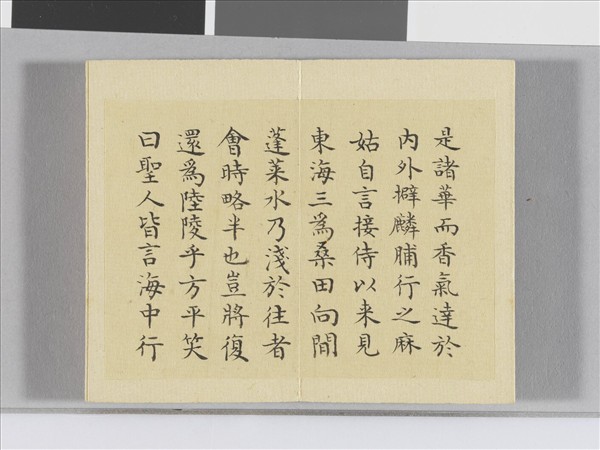 是諸華而香氣達於
内外擗麟脯行之麻
姑自言接侍以来見
東海三為桑田向間
蓬萊水乃淺於往者
會時略半也豈將復
還為陸陵乎方平笑
曰聖人皆言海中行